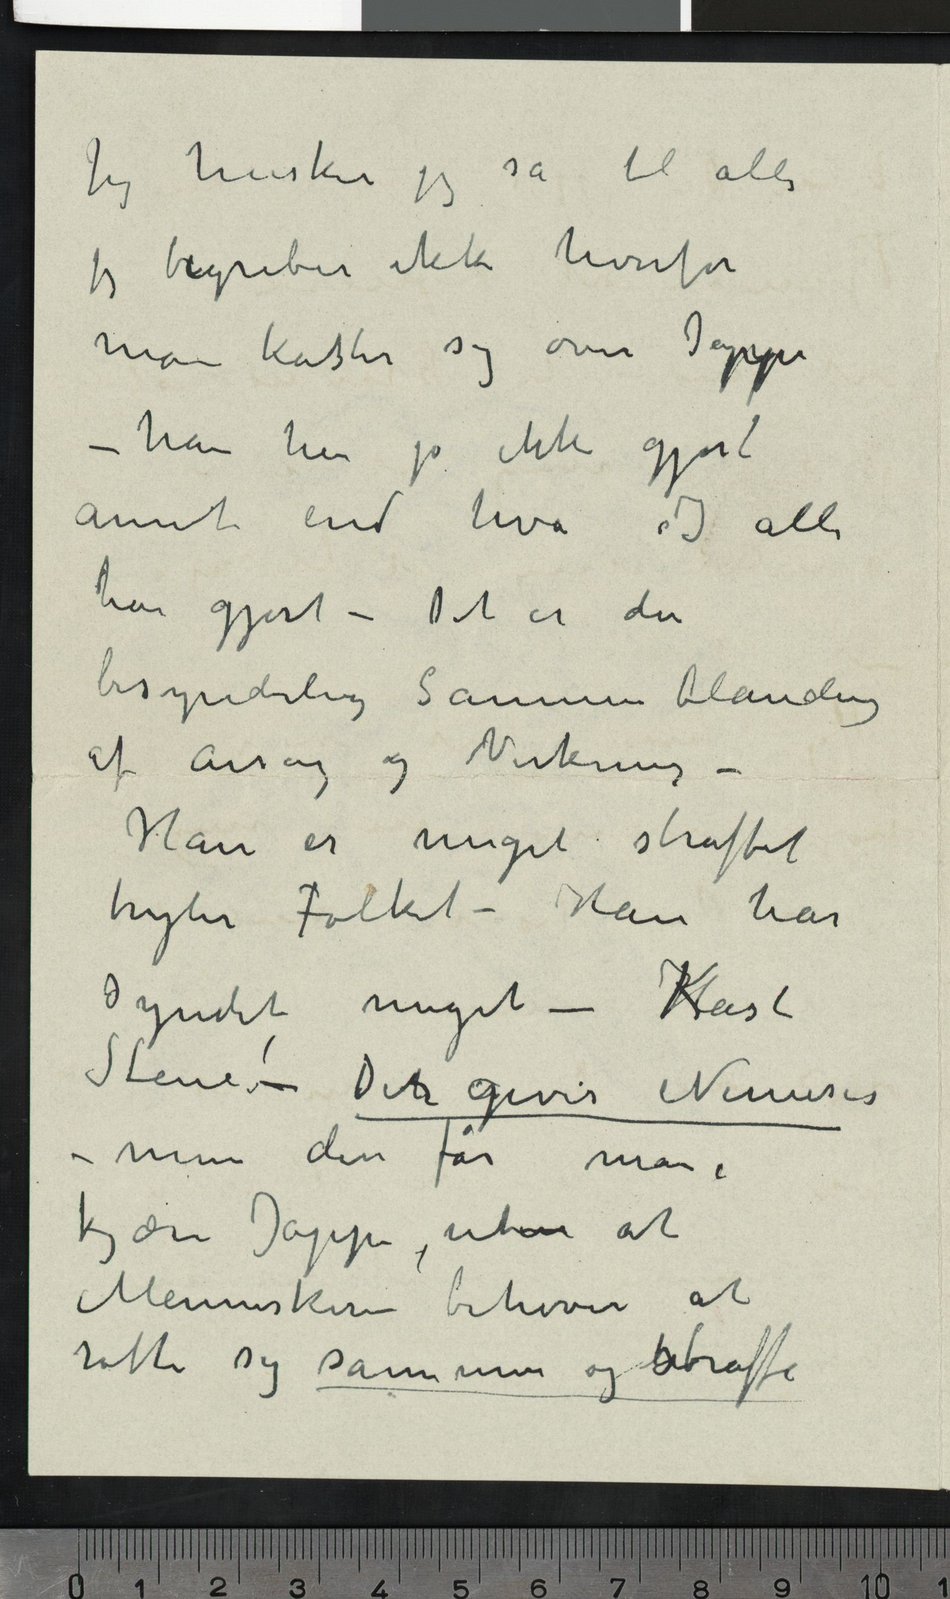 Jeg husker jeg sa til alle
jeg begriber ikke hvorfor
man kaster sig over Jappe
– han har jo ikke gjort
annet end hva I alle
har gjort – Det er den
besynderlig Sammenblanding
af Årsag og Virkning –
Han er meget straffet
tryler Folket – Han har
Syndet meget – Kast
Stene! – Det gives Nemesis
– men den får man,
kjære Jappe, uten at
Menneskene behøver at
rotte sig sammen og straffe
0 1 2 3 4 5 6 7 8 9 10 1